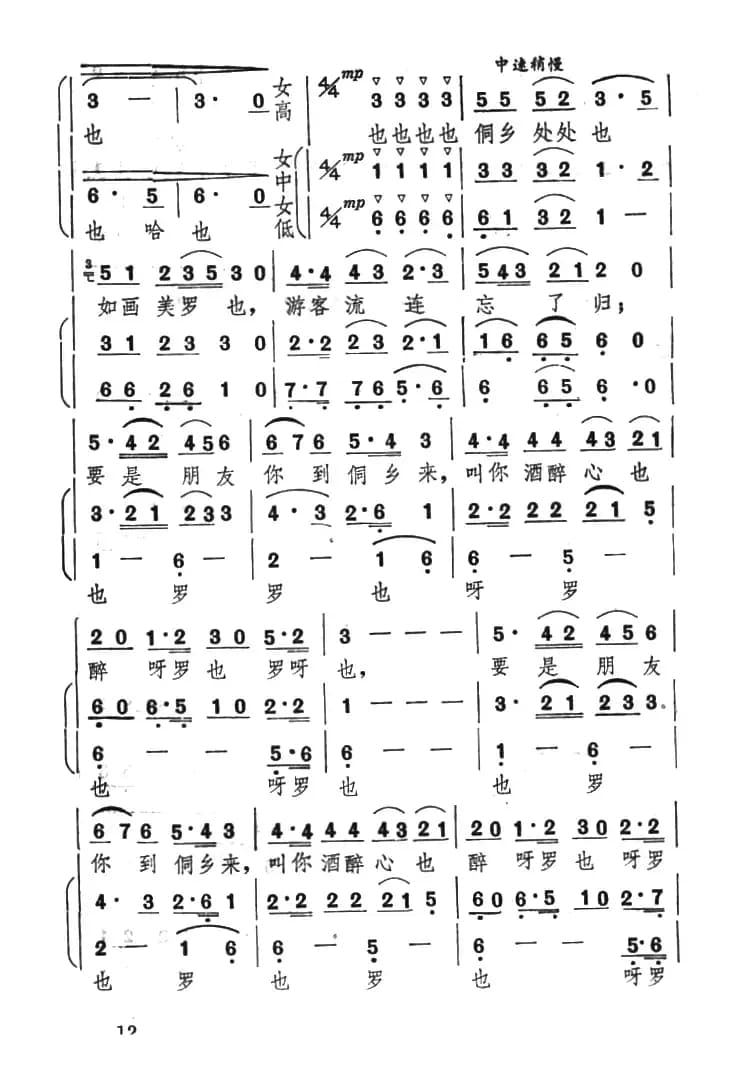 中速稍慢
3 — 3· 0 女高 4/4 mp 3 3 3 3 55 52 3·5
也 也也也也 侗乡 处处 也
6·5 6· 0 女中 4/4 mp 1 1 1 1 33 32 1·2
女低 4/4 mp 6 6 6 6 61 32 1 —
也 哈 也
51 235 30 4·4 43 2·3 543 21 2 0
如画 美罗 也, 游客 流 连 忘 了 归;
31 23 30 2·2 23 2·1 16 65 6 0
66 26 10 7·7 76 5·6 6 65 6 ·0
5·42 456 676 5·43 4·4 44 43 21
要是 朋友 你 到 侗乡来, 叫你 酒醉 心 也
3·21 233 4·3 2·6 1 2·2 22 221 5
1 — 6 — 2 — 1 6 6 — 5 —
也 罗 罗 也 呀 罗
20 1·2 30 5·2 3 — — — 5·42 456
醉 呀罗 也 罗呀 也, 要是 朋友
60 6·5 10 2·2 1 — — — 3·21 233
6 — — 5·6 6 — — — 1 — 6 —
也 呀罗 也 也 罗
676 5·43 4·4 44 43 21 20 1·2 30 2·2
你 到 侗乡来, 叫你 酒醉 心 也 醉 呀罗 也 呀罗
4·3 2·61 2·2 22 221 5 60 6·5 10 2·7
2 — 1 6 6 — 5 — 6 — — 5·6
也 罗 也 罗 也 呀罗
12